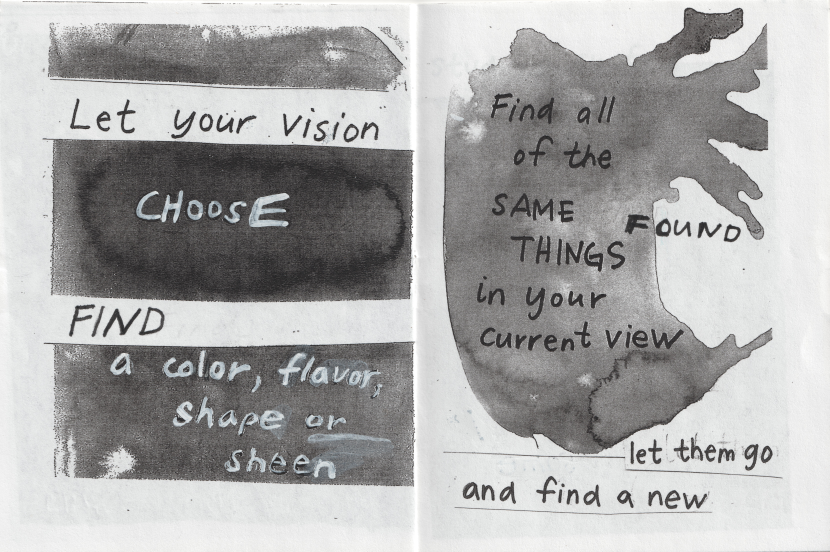 Let your vision
CHOOSE
FIND
a color, flavor,
shape or
sheen
Find all
of the
SAME
FOUND
THINGS
in your
current view
let them go
and find a new